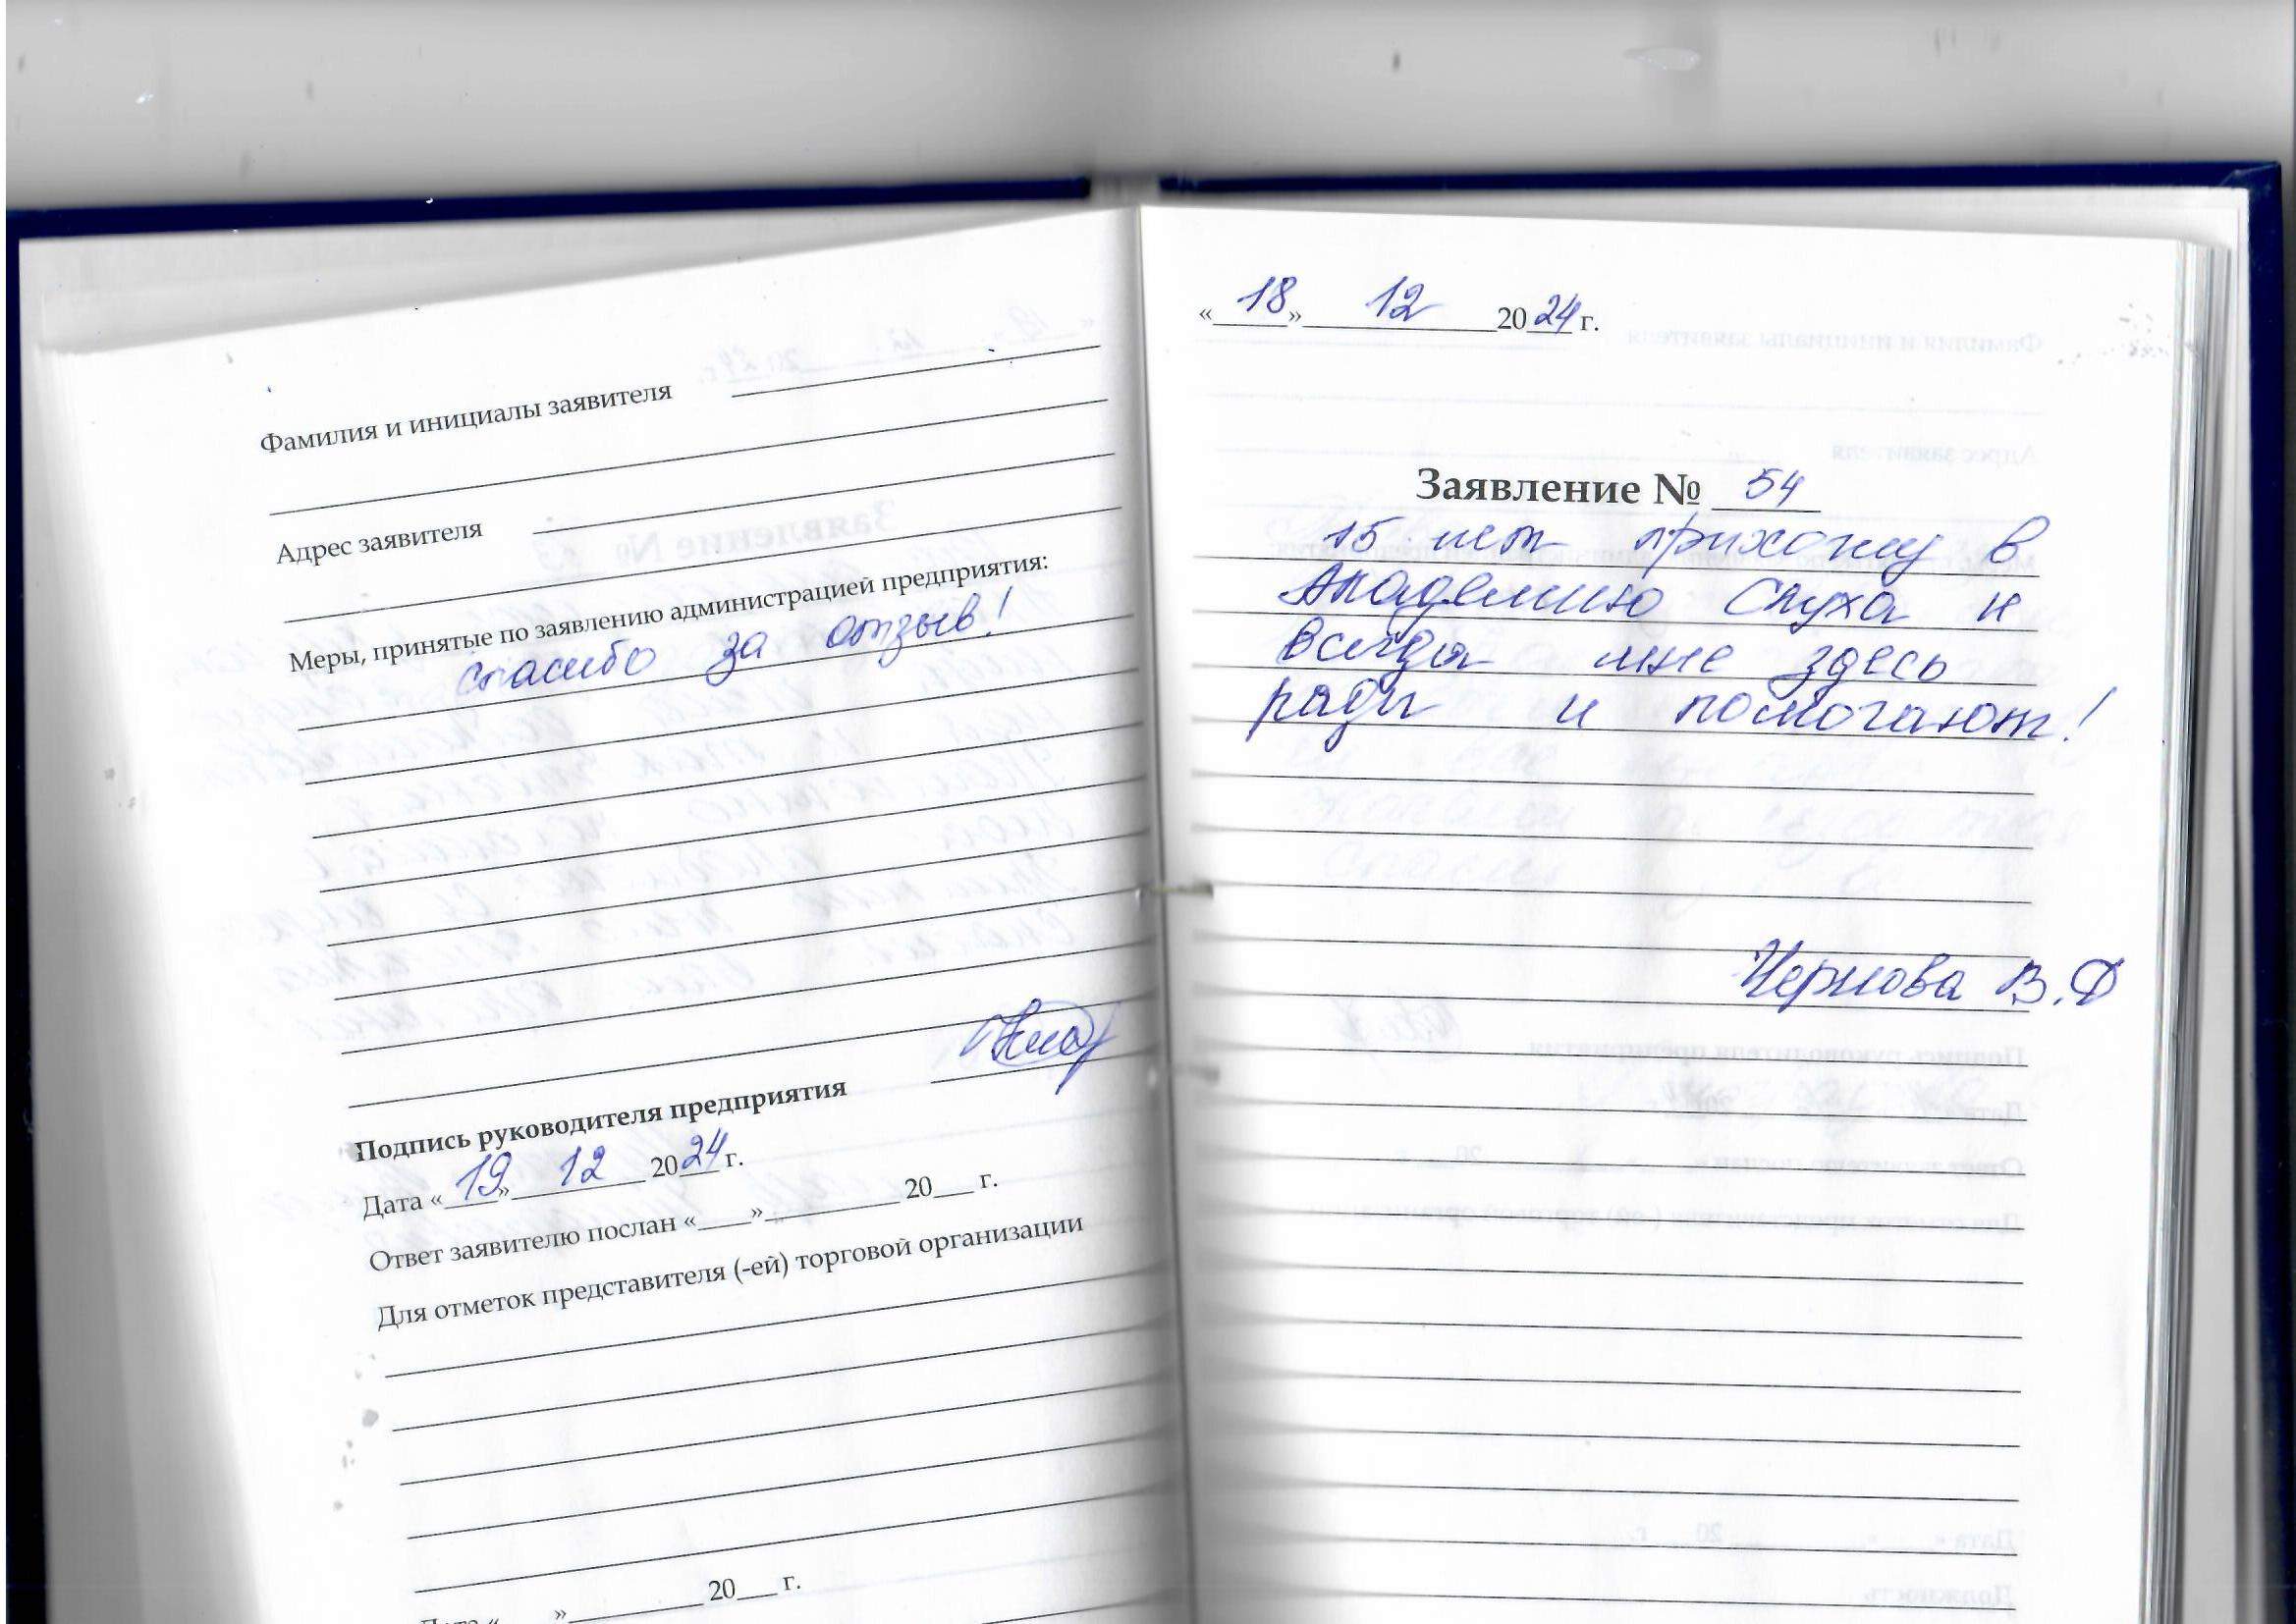 Фамилия и инициалы заявителя
Адрес заявителя
Меры, принятые по заявлению администрацией предприятия:
спасибо за отзыв!
Подпись руководителя предприятия
Дата «19» 12 2024 г.
Ответ заявителю послан «____»__________ 20___ г.
Для отметок представителя (-ей) торговой организации
Дата «____»__________ 20___ г.
«18» 12 2024 г.
Заявление № 54
15 лет прихожу в
Академию Слуха и
всегда мне здесь
рады и помогают!
Чернова В.Ф